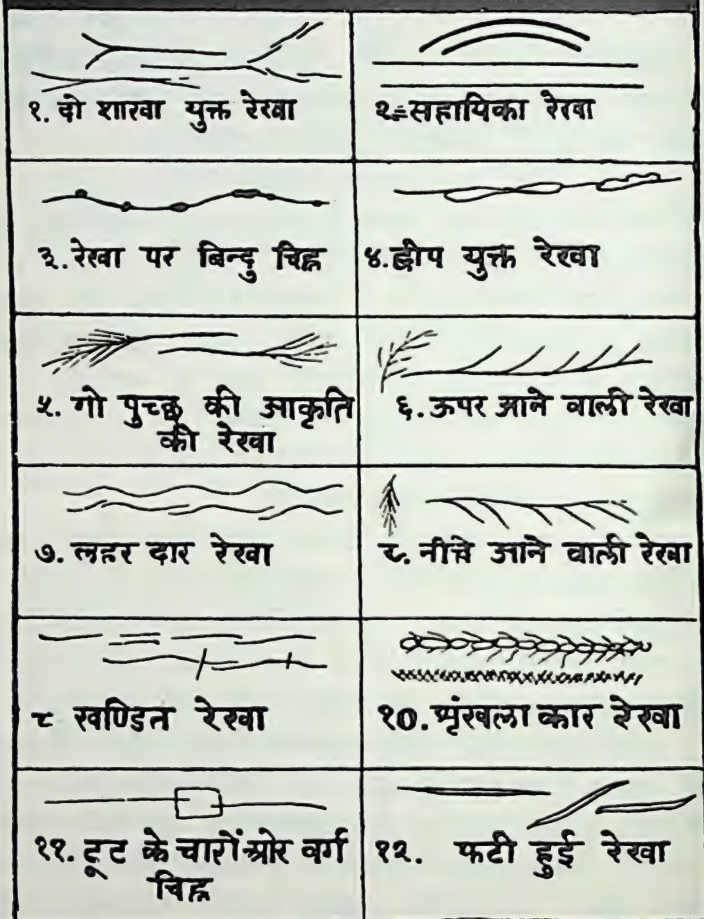 १. दो शाखा युक्त रेखा
२. सहायिका रेखा
३. रेखा पर बिन्दु चिह्न
४. द्वीप युक्त रेखा
५. गो पुच्छ की आकृति
की रेखा
६. ऊपर आने वाली रेखा
७. लहर दार रेखा
८. नीचे आने वाली रेखा
९ खण्डित रेखा
१०. श्रृंखला कार रेखा
११. टूट के चारों ओर वर्ग
चिह्न
१२. फटी हुई रेखा